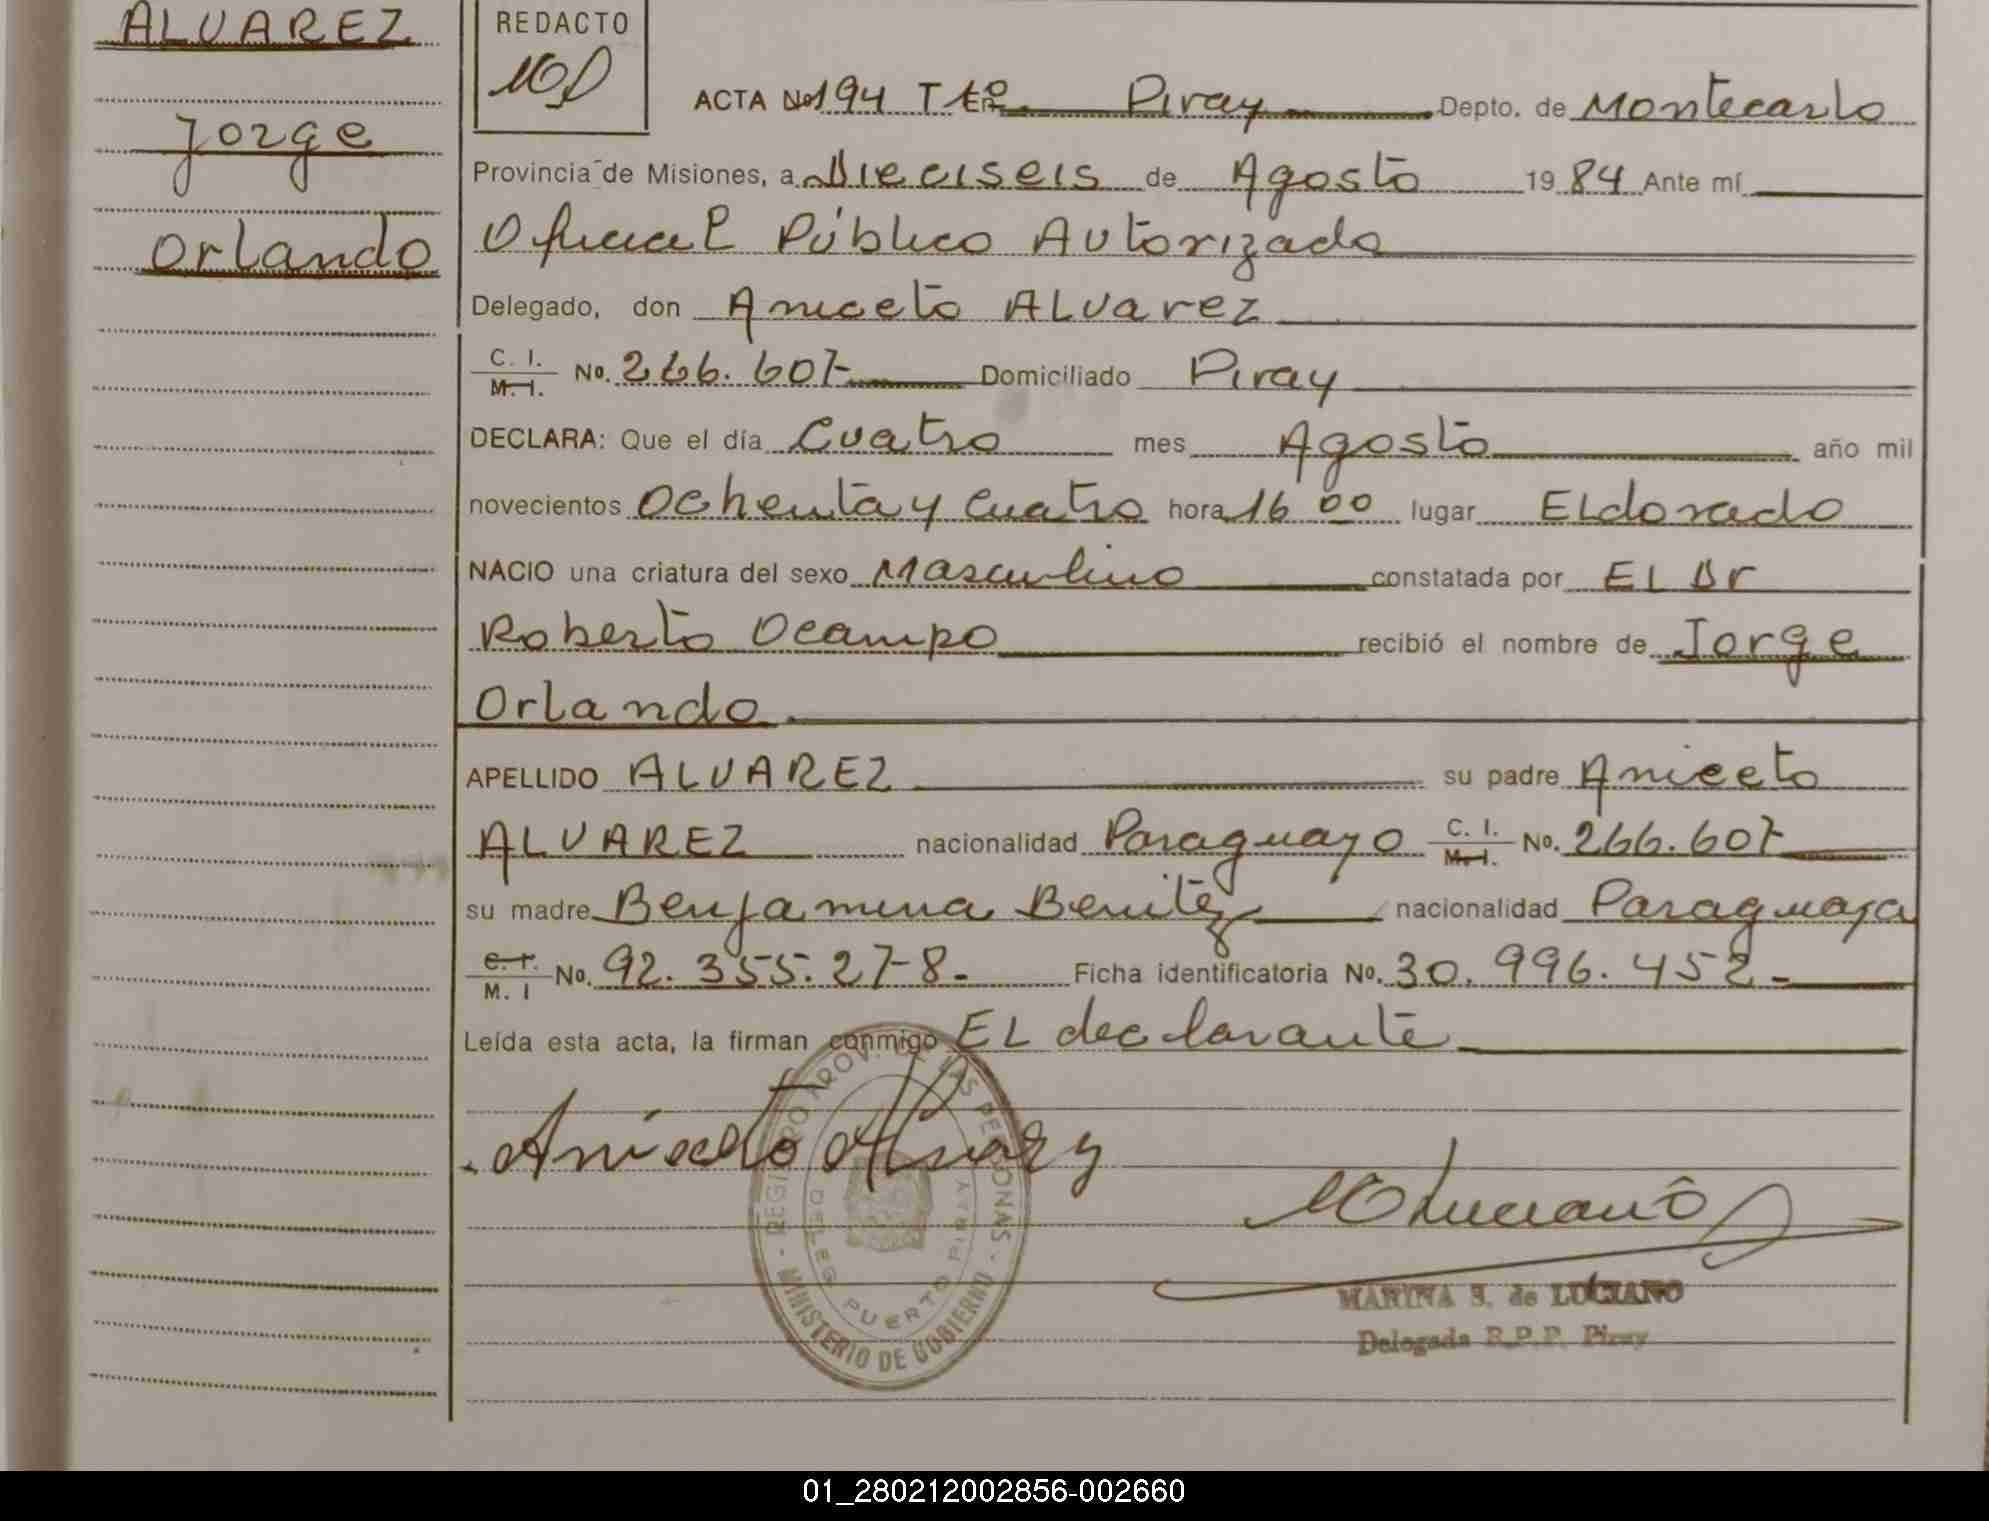 ALVAREZ
Jorge
Orlando
REDACTO
ACTA No 194 T Piray Depto. de Montecarlo
Provincia de Misiones, a Dieciseis de Agosto 19 84 Ante mí
Oficial Público Autorizado
Delegado, don Aniceto ALVarez
C. I.
M. I. No. 266.607 Domiciliado Piray
DECLARA: Que el día Cuatro mes Agosto año mil
novecientos Ochenta y Cuatro hora 16 00 lugar ELdorado
NACIO una criatura del sexo Masculino constatada por EL Dr
Roberto Ocampo recibió el nombre de Jorge
Orlando
APELLIDO ALVAREZ su padre Aniceto
ALVAREZ nacionalidad Paraguayo C. I. M. I. No. 266.607
su madre Benjamina Benitez nacionalidad Paraguaya
C. I.
M. I No. 92.355.278.- Ficha identificatoria No. 30.996.452.-
Leída esta acta, la firman conmigo EL declarante
Aniceto Alvarez
REGISTRO PROV. DE LAS PERSONAS
DELEG. PUERTO PIRAY
MINISTERIO DE GOBIERNO
Luciano
MARINA S. de LUCIANO
Delegada R.P.P. Piray
01_280212002856-002660